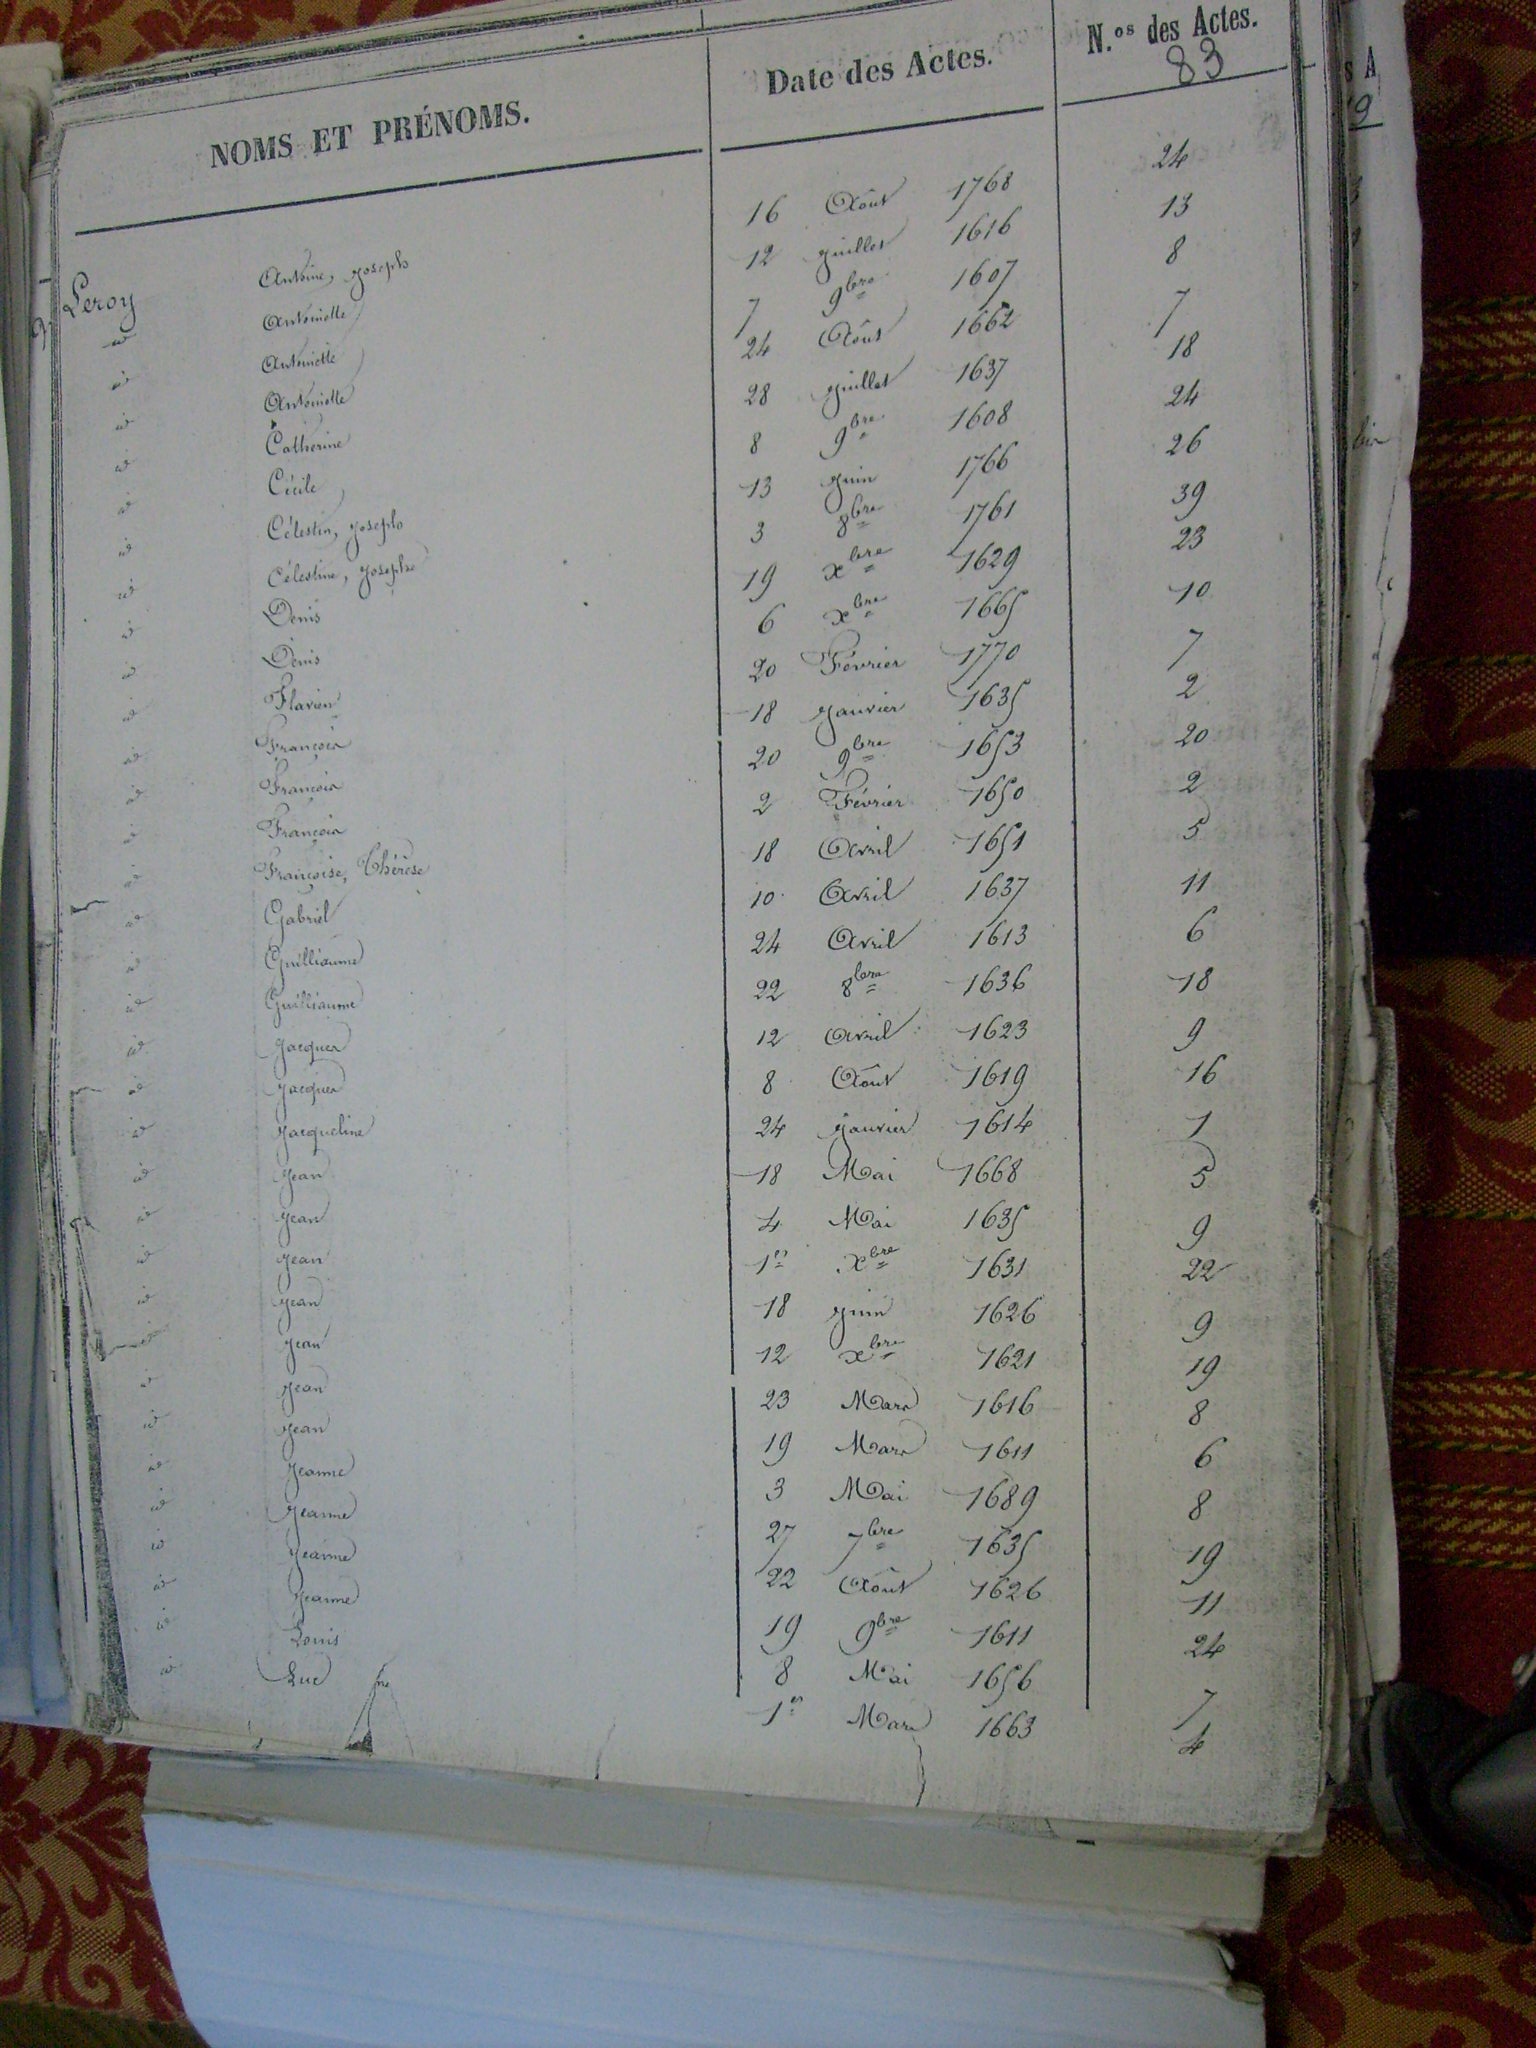 NOMS ET PRÉNOMS. Date des Actes. N.os des Actes.
83
Leroy Antoine, Joseph 16 Août 1768 24
id Antoinette 12 Juillet 1616 13
id Antoinette 7 9bre 1607 8
id Antoinette 24 Août 1662 7
id Catherine 28 Juillet 1637 18
id Cécile 8 9bre 1608 24
id Célestin, Joseph 13 Juin 1766 26
id Célestine, Josephe 3 8bre 1761 39
id Denis 19 xbre 1629 23
id Denis 6 xbre 1665 10
id Flavien 20 Février 1770 7
id François 18 Janvier 1635 2
id François 20 9bre 1653 20
id François 2 Février 1650 2
id Françoise, Thérèse 18 Avril 1651 5
id Gabriel 10 Avril 1637 11
id Guilliaume 24 Avril 1613 6
id Guilliaume 22 8bre 1636 18
id Jacques 12 avril 1623 9
id Jacques 8 Août 1619 16
id Jacqueline 24 Janvier 1614 1
id Jean 18 Mai 1668 5
id Jean 4 Mai 1635 9
id Jean 1er xbre 1631 22
id Jean 18 Juin 1626 9
id Jean 12 xbre 1621 19
id Jean 23 Mars 1616 8
id Jean 19 Mars 1611 6
id Jeanne 3 Mai 1689 8
id Jeanne 27 7bre 1635 19
id Jeanne 22 Août 1626 11
id Jeanne 19 9bre 1611 24
id Louis 8 Mai 1656 7
id Luc 1er Mars 1663 4